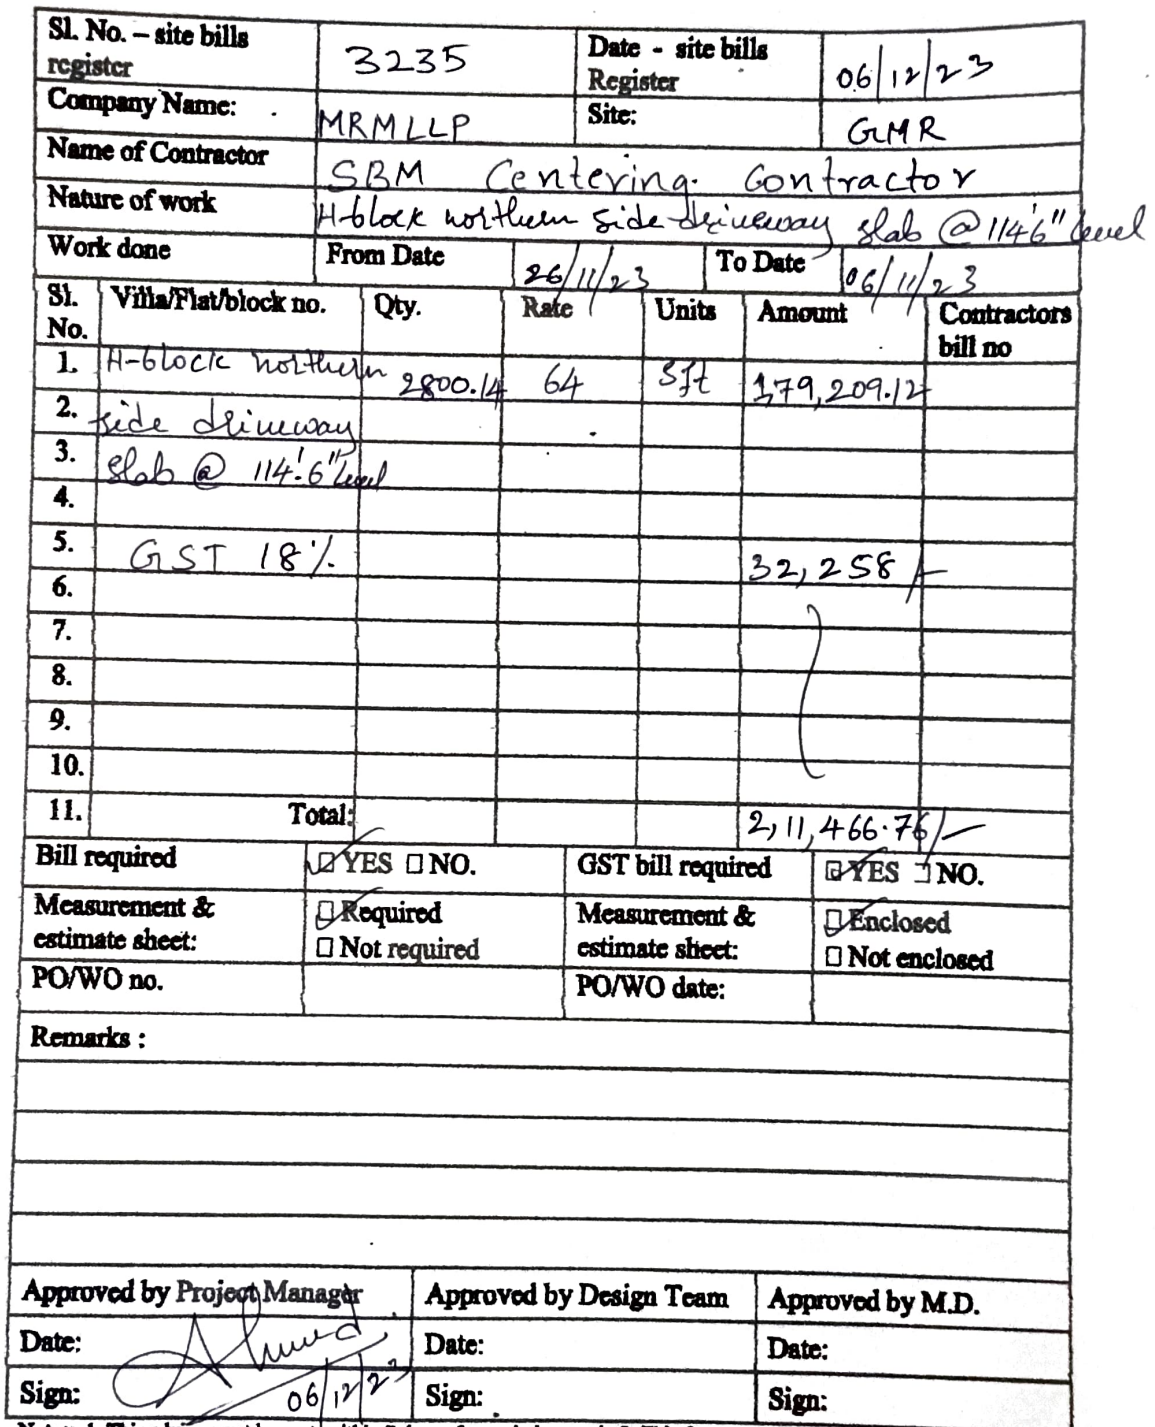 Sl. No. – site bills register 3235 Date - site bills Register 06/12/23
Company Name: MRMLLP Site: GMR
Name of Contractor SBM Centering Contractor
Nature of work H-block northern side driveway slab @ 114'6" level
Work done From Date 26/11/23 To Date 06/11/23
Sl. No. Villa/Flat/block no. Qty. Rate Units Amount Contractors bill no
1. H-block northern 2800.14 64 Sft 1,79,209.12
2. side driveway
3. slab @ 114'.6" level
4.
5. GST 18% 32,258/-
6.
7.
8.
9.
10.
11. Total: 2,11,466.76/-
Bill required ☑ YES ☐ NO. GST bill required ☑ YES ☐ NO.
Measurement & estimate sheet: ☑ Required ☐ Not required Measurement & estimate sheet: ☑ Enclosed ☐ Not enclosed
PO/WO no. PO/WO date:
Remarks :
Approved by Project Manager Approved by Design Team Approved by M.D.
Date: Date: Date:
Sign: 06/12/23 Sign: Sign: